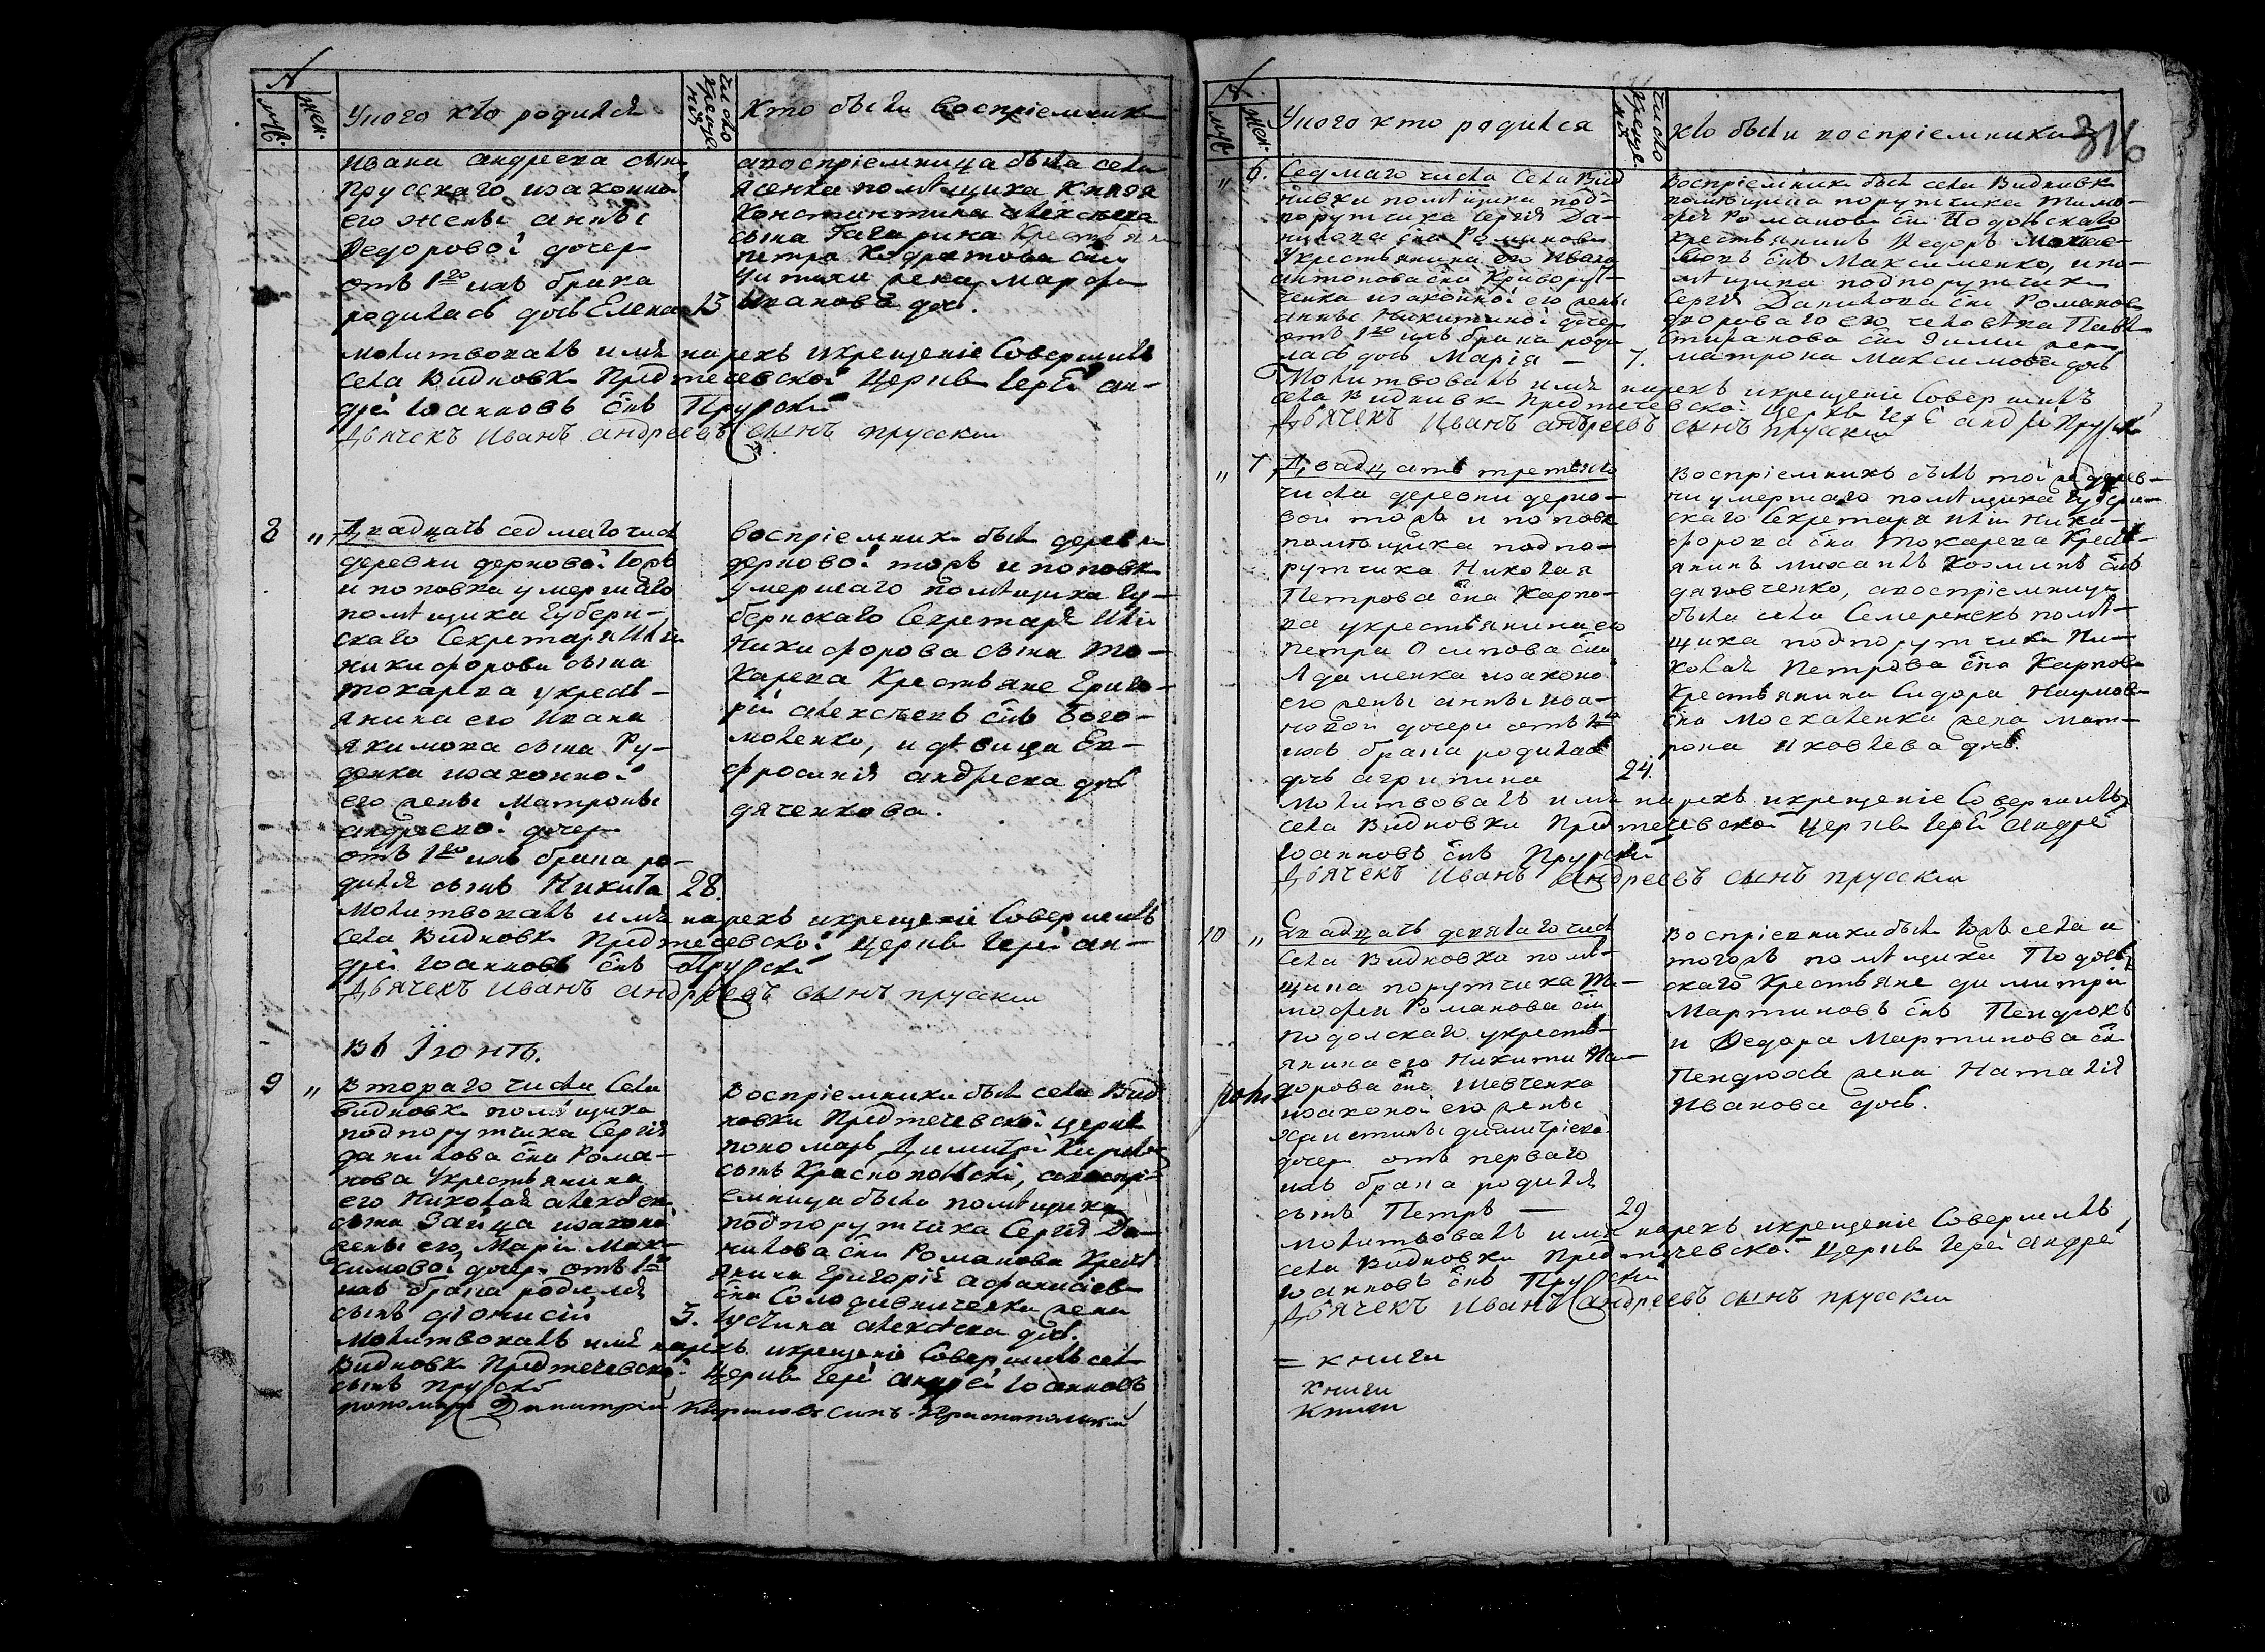 №
муж.
жен.
У кого кто родился
число крещенія
Кто были воспріемники
Ивана Андреева сына
Прусскаго изаконной
его жены Анны
Ѳедоровой дочери
отъ 1го ихъ брака
родилась дочь Елена 15
авоспріемница была села
помѣщика Князя
Константина Алексѣева
сына Гагарина
Петра сна
жена Марфа
Иванова дочь.
Молитвовалъ имя нарекъ икрещеніе Совершилъ
села Видновки Предтечевской Церкви Іерей Ан-
дрей Іоанновъ снъ Прускій
Дьячекъ Иванъ Андреевъ сынъ прусскии
8 " Двадцать седмаго числа
деревни дерновой тожъ
и поповки умершаго
помѣщика Губерн-
скаго Секретаря Иліи
Никифорова сына
токарева укресть-
янина его Ивана
Якимова сына Ру-
денка изаконной
его жены Матроны
Андреевой дочери
отъ 1го ихъ брака ро-
дился сынъ Никита 28.
воспріемники были деревни
дерновой тожъ и поповки
умершаго помѣщика гу-
бернскаго Секретаря Иліи
Никифорова сына То-
карева Крестьяне Григо-
рій Алексѣевъ снъ Бого-
моленко, и дѣвица Ев-
фросинія Андреева дочь
дяченкова.
Молитвовалъ имя нарекъ икрещеніе Совершилъ
села Видновки Предтечевской Церкви Іерей Ан-
дрей Іоанновъ снъ Прускій
Дьячекъ Иванъ Андреевъ сынъ прусскии
Въ Іюнѣ.
9 " Втораго числа Села
Видновки помѣщика
подпорутчика Сергія
данилова сна Рома-
нова Укрестьянина
его Николая Алексѣева
сына Зайца изаконой
жены его Маріи Мак-
симовой дочери отъ 1го
ихъ брака родился
сынъ діонисій 3.
Воспріемники были села Вид
новки Предтечевской церкви
пономарь Димитрій Кириловъ
сынъ Краснопольскій, авоспрі-
емница была помѣщика
подпорутчика Сергія Да-
нилова сна Романова Крест
янина Григорія Афанасіева
сна Солодивниченка жена
Іустина Алексѣева дочь.
Молитвовалъ имя нарекъ икрещеніе Совершилъ села
Видновки Предтечевской Церкви Іерей Андрей Іоанновъ
сынъ Прускій
пономарь Димитрій Кириловъ синъ Краснопольскій
№
муж.
жен.
У кого кто родился
число крещенія
Кто были воспріемники
316
" 6. Седмаго числа Села Вид
новки помѣщика под-
порутчика Сергія Да-
нилова сна Романова
Укрестьянина его Ивана
Антонова сна Криворут-
ченка изаконной его жены
Анны Никитиной дочери
отъ 1го ихъ брака роди
лась дочь Марія — 7.
Воспріемники были села Видновки
помѣщика порутчика Тимо-
фея Романова сна Подольскаго
Крестьянинъ Ѳедоръ
снъ Максименко, ипо-
мѣщика подпорутчика
Сергія Данилова сна Романова
двороваго его человѣка Павла
сна жена
Матрона Максимова дочь
Молитвовалъ имя нарекъ икрещеніе Совершилъ
села Видновки Предтечевской Церкви Іерей Андрей Прускій
Дьячекъ Иванъ Андреевъ сынъ прусскии
" 7 Двадцать третьяго
числа деревни дерно-
вой тожъ и поповки
помѣщика подпо-
рутчика Николая
Петрова сна Карпо-
ва укрестьянина его
Петра Осипова сна
Адаменка изаконо
его жены Анны Ива-
новой дочери отъ
ихъ брака родилась
дочь Агрипина 24.
Воспріемникъ былъ той же дерев-
ни умершаго помѣщика губерн-
скаго Секретаря Иліи Ники-
форова сна Токарева Крест-
янинъ Михаилъ Козминъ снъ
авоспріемница
была села Семеренекъ помѣ-
щика подпорутчика Ни-
колая Петрова сна Карпова
Крестьянина Сидора Наумова
сна Москаленка жена Мат-
рона Яковлева дочь.
Молитвовалъ имя нарекъ икрещеніе Совершилъ
села Видновки Предтечевской Церкви Іерей Андрей
Іоанновъ снъ Прускій
Дьячекъ Иванъ Андреевъ сынъ прусскии
10 " Двадцать девятаго числа
Села Видновки помѣ-
щика порутчика Ти-
мофея Романова сна
Подолскаго укресть-
янина его Никити
сна Шевченка
изаконой его жены
Христины димитріевой
дочери отъ перваго
ихъ брака родился
сынъ Петръ — 29
Воспріемники были тожъ села и
тогожъ помѣщика Подоль
скаго Крестьяне димитрій
Мартиновъ снъ Пендюхъ
и Ѳедора Мартинова сна
Пендюха жена Наталія
Иванова дочь.
Молитвовалъ имя нарекъ икрещеніе Совершилъ
села Видновки Предтечевской Церкви Іерей Андрей
Іоанновъ снъ Прускій
Дьячекъ Иванъ Андреевъ сынъ прусскии
= книги
книги
книги